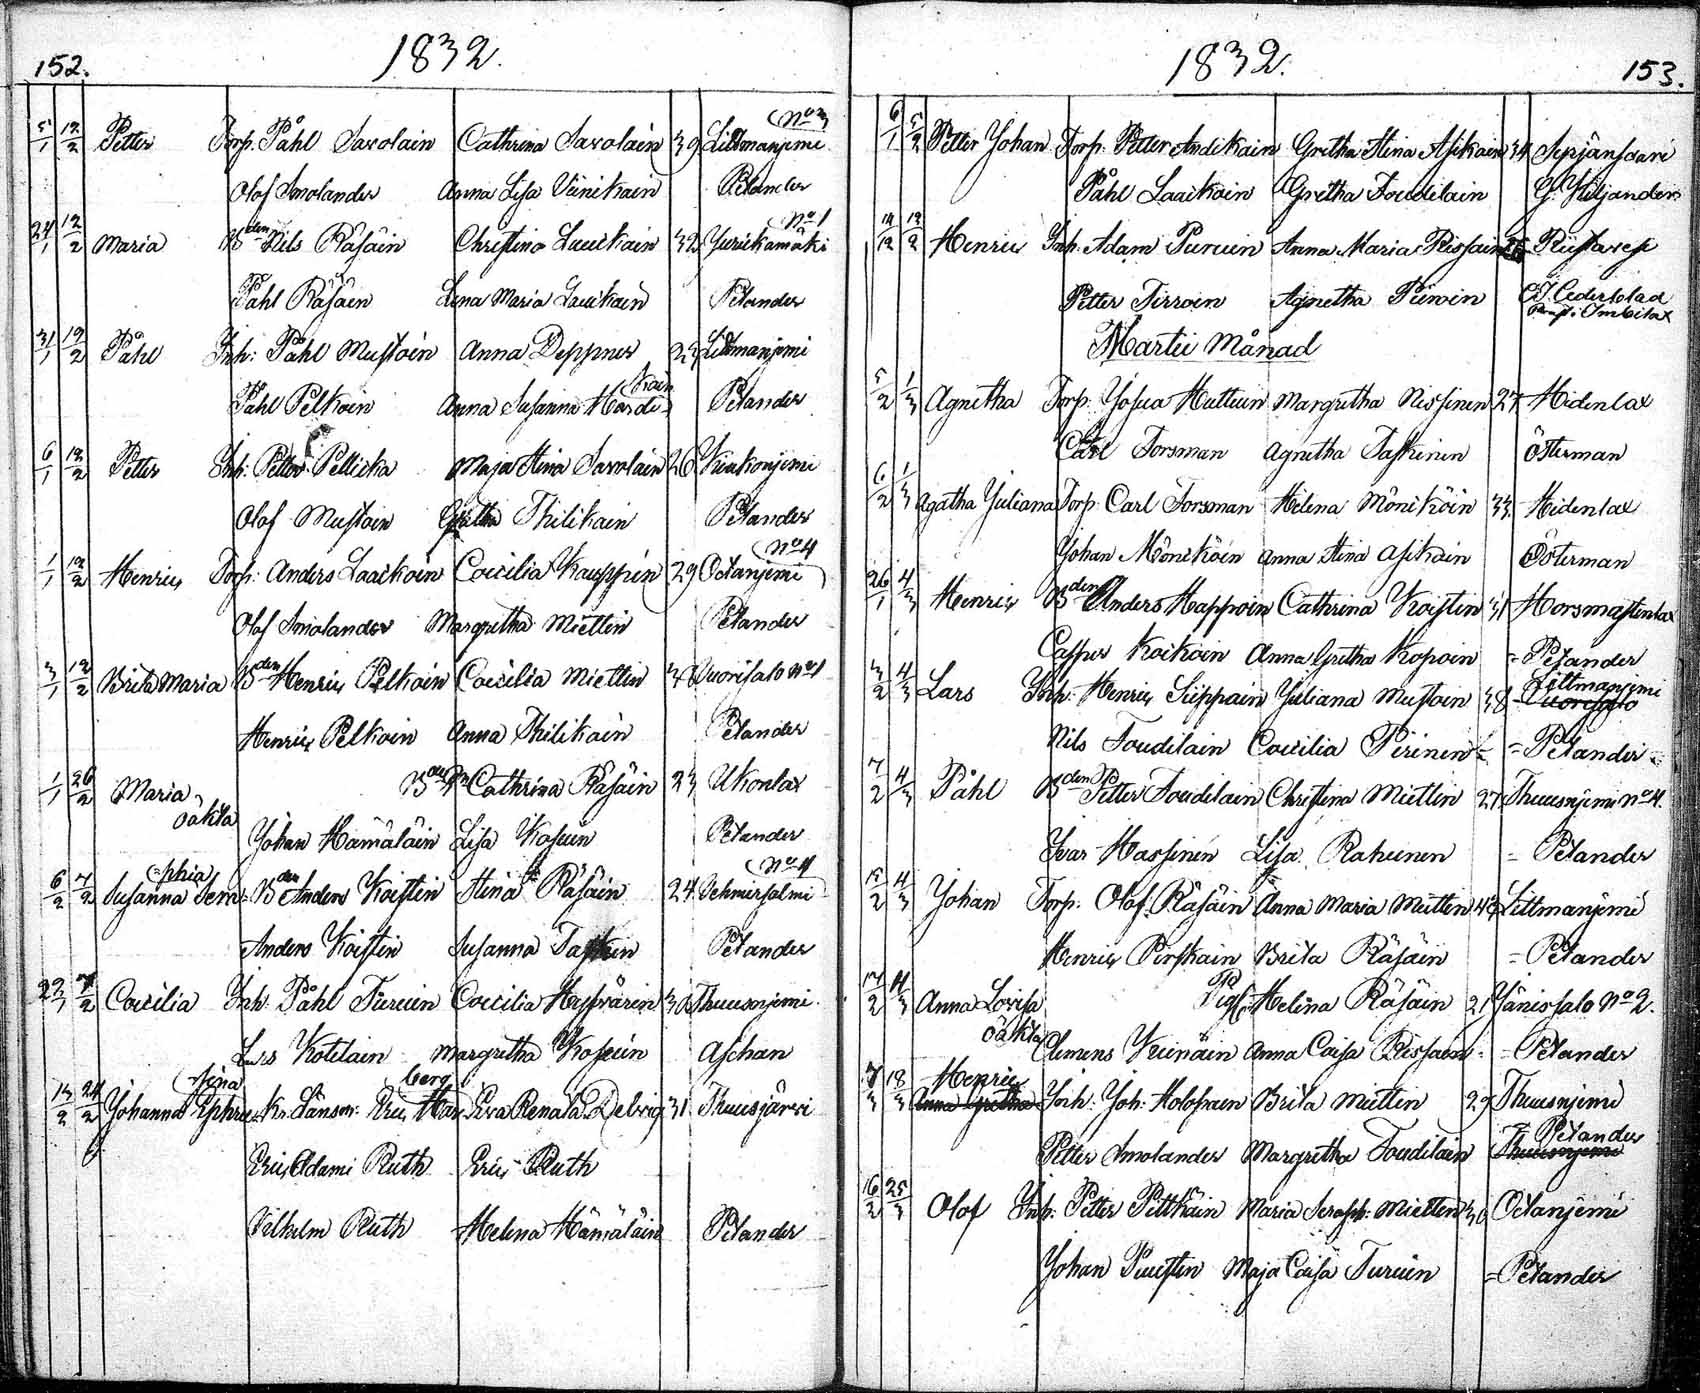 152. 1832.
No 3
5/1 12/2 Petter Torp. Påhl Savolain Cathrina Savolain 39 Littmanjemi
Olof Smolander Anna Lisa Vänikain Pelander
No 1
24/1 12/2 Maria Bden Nils Räsäin Christina Laackain 32 Jurickamäki
Påhl Räsäin Lena Maria Laackain Pelander
31/1 12/2 Påhl Inh: Påhl Mustoin Anna Deppner 23 Littmanjemi
kain
Påhl Pelkoin Anna Susanna Hardi- Pelander
6/1 12/2 Petter Inh: Petter Pellicka Maja Stina Savolain 26 Kiukonjemi
Olof Mustoin Gretha Thilikain Pelander
No 4
1/1 12/2 Henric Torp: Anders Laackoin Coecilia Kauppin 29 Oetanjemi
Olof Smolander Margretha Miettin Pelander
3/1 12/2 Brita Maria Bden Henric Pelkoin Coecilia Miettin 38 Vuorisalo No 1
Henric Pelkoin Anna Thilikain Pelander
1/1 26/2 Maria Cathrina Räsäin 23 Ukonlax
oäkta
Johan Hämäläin Lisa Kosuin Pelander
-phia No 4
6/2 7/2 Susanna Bden Anders Koistin Stina Räsäin 24 Vehmersalmi
Anders Koistin Susanna Pelander
22/1 7/2 Coecilia Inh. Påhl Turuin Coecilia Hyppärin 30 Thuusnjemi
Lars Kotilain Margretha Kosuin Aschan
sina berg
13/2 24/2 Johanna Ephro- Kr. Länsm: Eric Har- Eva Renata Delvig 31 Thuusjärvi
Eric Adami Ruth Eric Ruth
Vilhelm Ruth Helena Hämäläin Pelander
1832. 153.
6/1 5/2 Petter Johan Torp: Petter Andikain Gretha Stina Asikain 34 Sepjänsaari
Påhl Laackain Gretha Toudilain G. Kiljander
14/12 12/2 Henric Inh. Adam Puruin Anna Maria Rissain Riistavesi
Petter Tirroin Agnetha Piiroin C.J. Cederblad
Martii Månad
5/2 1/3 Agnetha Torp: Josua Huttuin Margretha Nissinen 27 Hidenlax
Carl Forsman Agnetha Taskinen Österman
6/2 1/3 Agatha Juliana Torp. Carl Forsman Helena Möniköin 33 Hidenlax
Johan Möniköin Anna Stina Asikain Österman
26/1 4/3 Henric Bden Anders Happoin Cathrina Koistin 31 Horsmastenlax
Casper Koikoin Anna Gretha Kopoin = Pelander
Littmanjemi
3/2 4/3 Lars Inh: Henric Siippain Juliana Mustoin 38 Vuorisalo
Nils Toudilain Coecilia Pirinen = Pelander
7/2 4/3 Påhl Bden Petter Toudilain Christina Miettin 27 Thuusnjemi No 4.
Ivar Hassinen Lisa Rahunen = Pelander
15/2 4/3 Johan Torp: Olof Räsäin Anna Maria Miettin 43 Littmanjemi
Henric Pirskain Brita Räsäin = Pelander
17/2 11/3 Anna Lovisa Pig. Helena Räsäin 21 Jänissalo No 2.
oäkta
Clemens Keinäin Anna Caisa Rissain = Pelander
Henric
7/3 18/3 Anna Gretha Inh: Joh: Holopain Brita Miettin 29 Thuusnjemi
= Pelander
Petter Smolander Margretha Toudilain Thuusnjemi
16/2 25/3 Olof Inh: Petter Pittkäin Maria Seraph: Mietten 30 Oetanjemi
Johan Puustin Maja Caisa Turuin = Pelander